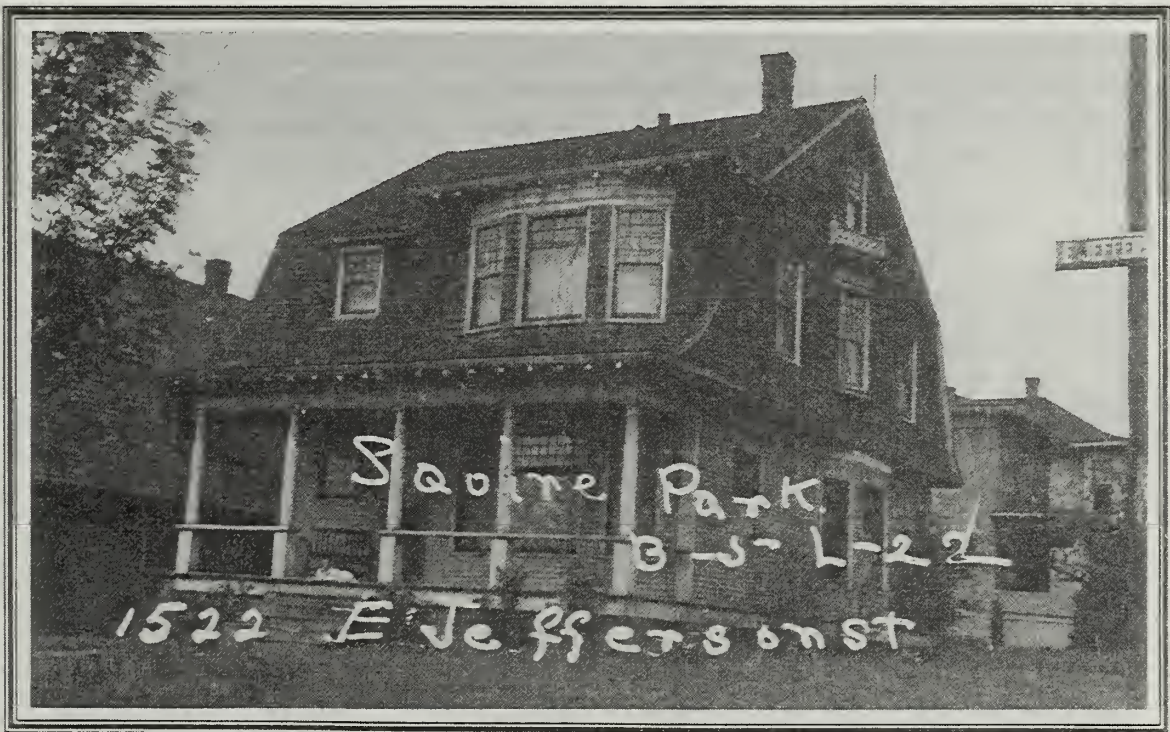 Squire Park.
B-5-L-22
1522 E Jefferson st